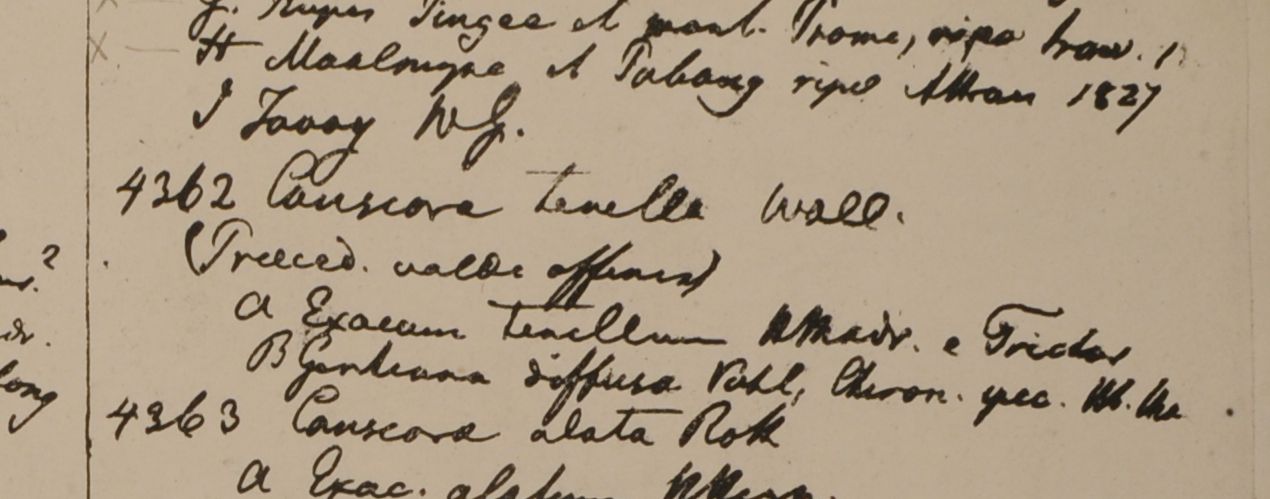 G. Rupes Pingee et mont. Prome, ripa Iraw.
H Maalmyne et Tabong ripa Attran 1827
I Tavoy W.G.
4362 Canscora tenella Wall.
(Præced. valde affinis)
a Exacum tenellum HMadr. e
B Gentiana diffusa Vahl, Chiron. spec.
4363 Canscora alata Roth
a Exac. alatum
long